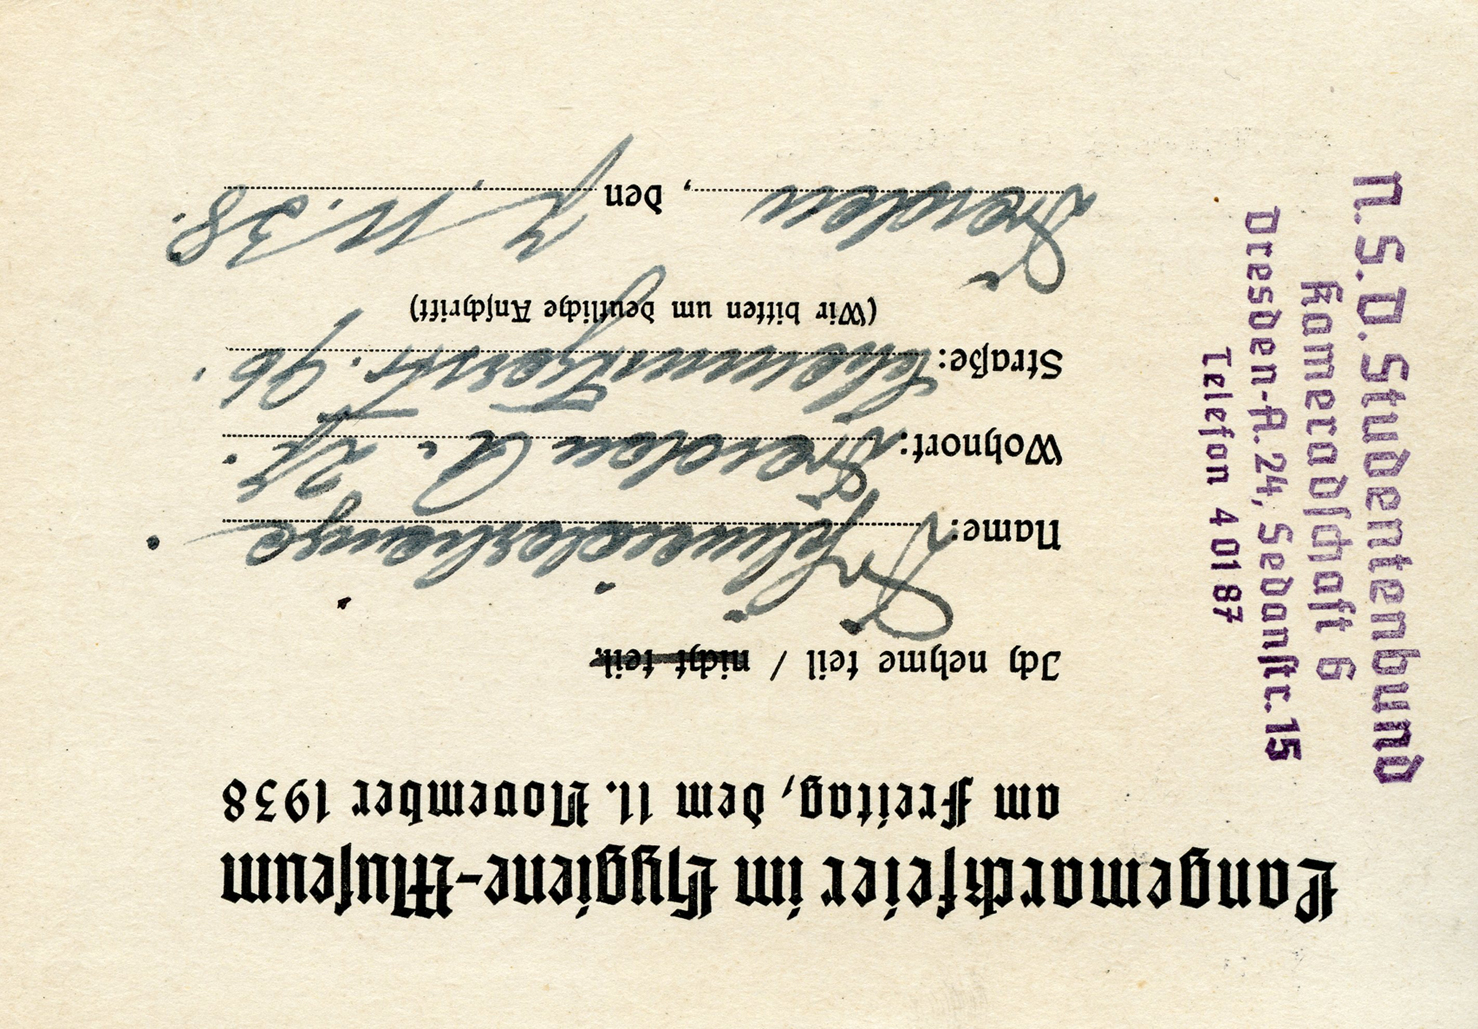 Langemarckfeier im Hygiene-Museum
am Freitag, dem 11. November 1938
Ich nehme teil / nicht teil.
Name:
Wohnort: Dresden A. 24.
Straße: Chemnitzerstr. 96.
(Wir bitten um deutliche Anschrift)
Dresden, den 7. 11. 38.
N.S.D.Studentenbund
Kameradschaft 6
Dresden-A.24, Sedanstr.15
Telefon 4 01 87